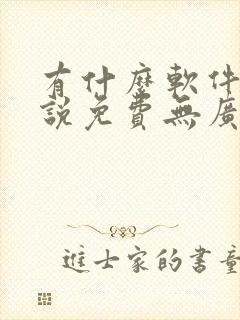 有什麼軟件
說免費無廣
進士家的書童